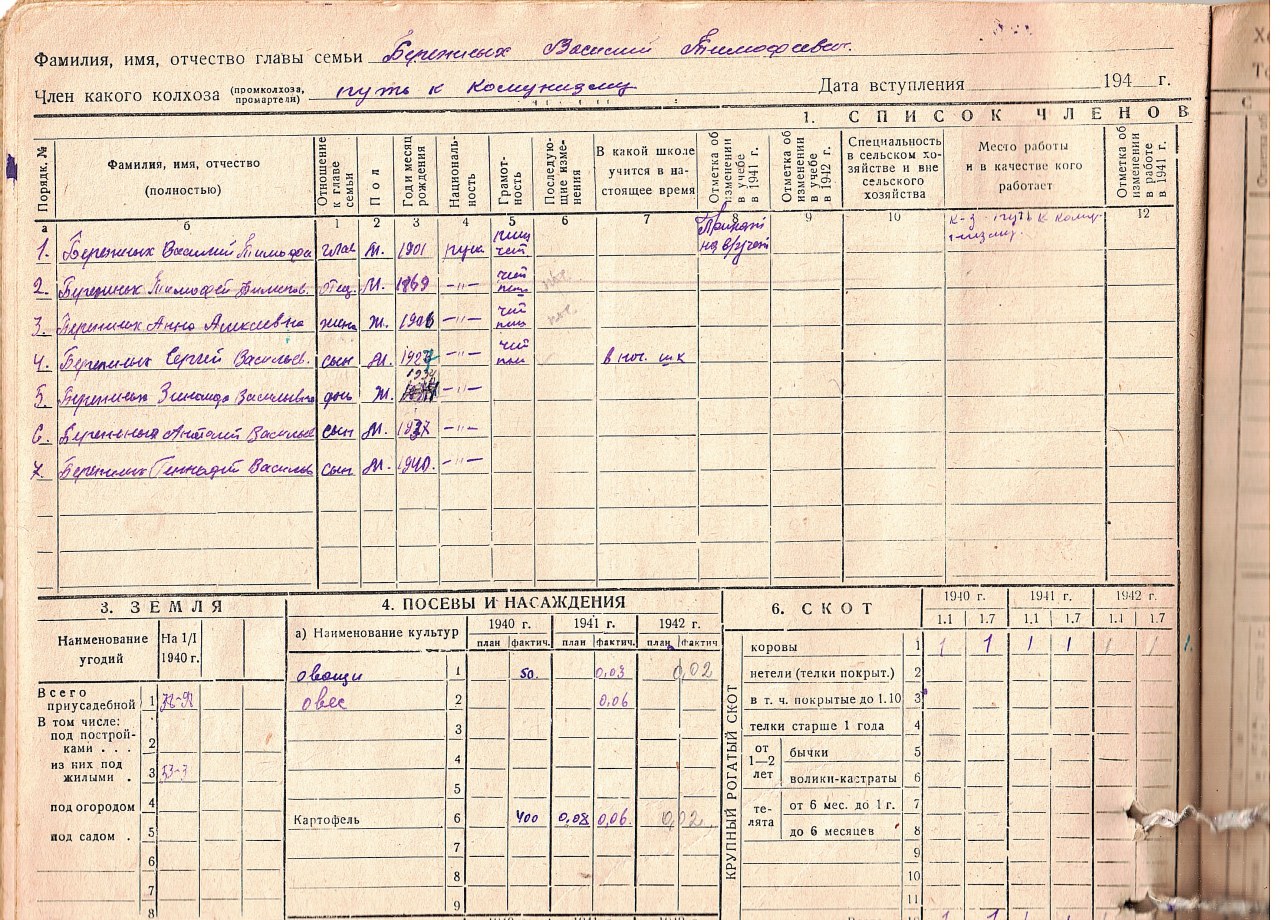 Фамилия, имя, отчество главы семьи Бережных Василий Тимофеевич.
Член какого колхоза (промколхоза, промартели) путь к Комунизму Дата вступления 194 г.
1. СПИСОК ЧЛЕНОВ
Порядк. № Фамилия, имя, отчество (полностью) Отношение к главе семьи Пол Год и месяц рождения Националь-ность Грамот-ность Последую-щие изме-нения В какой школе учится в на-стоящее время Отметка об изменении в учебе в 1941 г. Отметка об изменении в учебе в 1942 г. Специальность в сельском хо-зяйстве и вне сельского хозяйства Место работы и в качестве кого работает Отметка об изменении в работе в 1941 г.
а б 1 2 3 4 5 6 7 8 9 10 12
к-з путь к кому-
низму.
1. Бережных Василий Тимофе глав М. 1901 руск
2. Тимофей отец. М. 1869 —"— чит
3. Анна Алексеевна жена Ж. 1906 —"— чит
4. Сергей Васильев. сын М. —"— чит шк
1934
5. Зинаида Васильевна дочь Ж. —"—
6. Анатолий Васильев сын М. 1937 —"—
7. Геннадий Васильев сын М. 1940. —"—
3. ЗЕМЛЯ
Наименование угодий На 1/I 1940 г.
Всего приусадебной 1
В том числе:
под построй-ками . . . 2
из них под жилыми . 3 53-3
под огородом 4
под садом . 5
6
7
8
4. ПОСЕВЫ И НАСАЖДЕНИЯ
а) Наименование культур 1940 г. 1941 г. 1942 г.
план фактич. план фактич. план фактич.
овощи 1 50. 0,03 0,02
овес 2 0.06
3
4
5
Картофель 6 400 0,08 0,06. 0,02
7
8
9
6. СКОТ 1940 г. 1941 г. 1942 г.
1.1 1.7 1.1 1.7 1.1 1.7
КРУПНЫЙ РОГАТЫЙ СКОТ
коровы 1 1 1 1 1 1 1 1.
нетели (телки покрыт.) 2
в т. ч. покрытые до 1.10 3
телки старше 1 года 4
от 1—2 лет бычки 5
волики-кастраты 6
те-лята от 6 мес. до 1 г. 7
до 6 месяцев 8
9
10
11